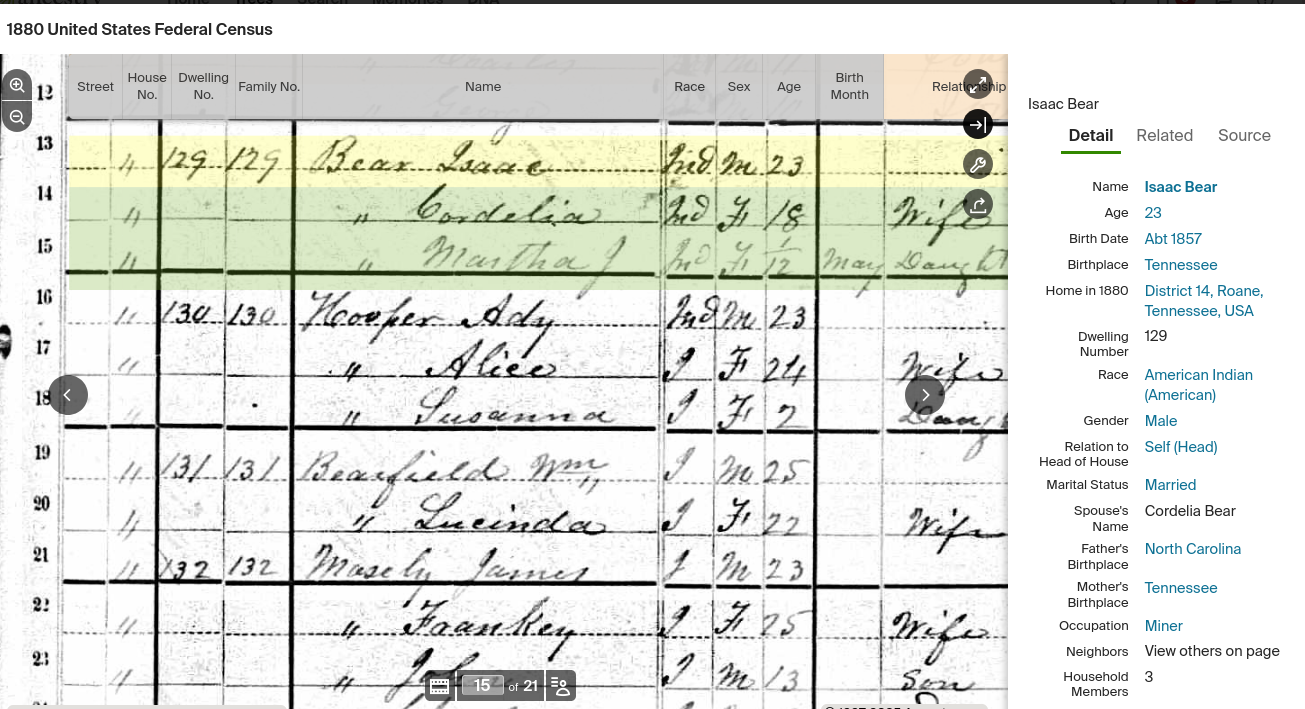 1880 United States Federal Census
Street House No. Dwelling No. Family No. Name Race Sex Age Birth Month Relationship
12
13 " 129 129 Bear Isaac Ind M 23
14 " " Cordelia Ind F 18 Wife
15 " " Martha J Ind F 1/12 May Daught
16 " 130 130 Hooper Ady Ind M 23
17 " " Alice I F 24 Wife
18 " " Susanna I F 2 Daug
19 " 131 131 Bearfield Wm I M 25
20 " " Lucinda I F 22 Wife
21 " 132 132 Masely James I M 23
22 " " Frankey I F 25 Wife
23 " " I M 13 Son
15 of 21
Isaac Bear
Detail Related Source
Name Isaac Bear
Age 23
Birth Date Abt 1857
Birthplace Tennessee
Home in 1880 District 14, Roane,
Tennessee, USA
Dwelling Number 129
Race American Indian
(American)
Gender Male
Relation to Head of House Self (Head)
Marital Status Married
Spouse's Name Cordelia Bear
Father's Birthplace North Carolina
Mother's Birthplace Tennessee
Occupation Miner
Neighbors View others on page
Household Members 3